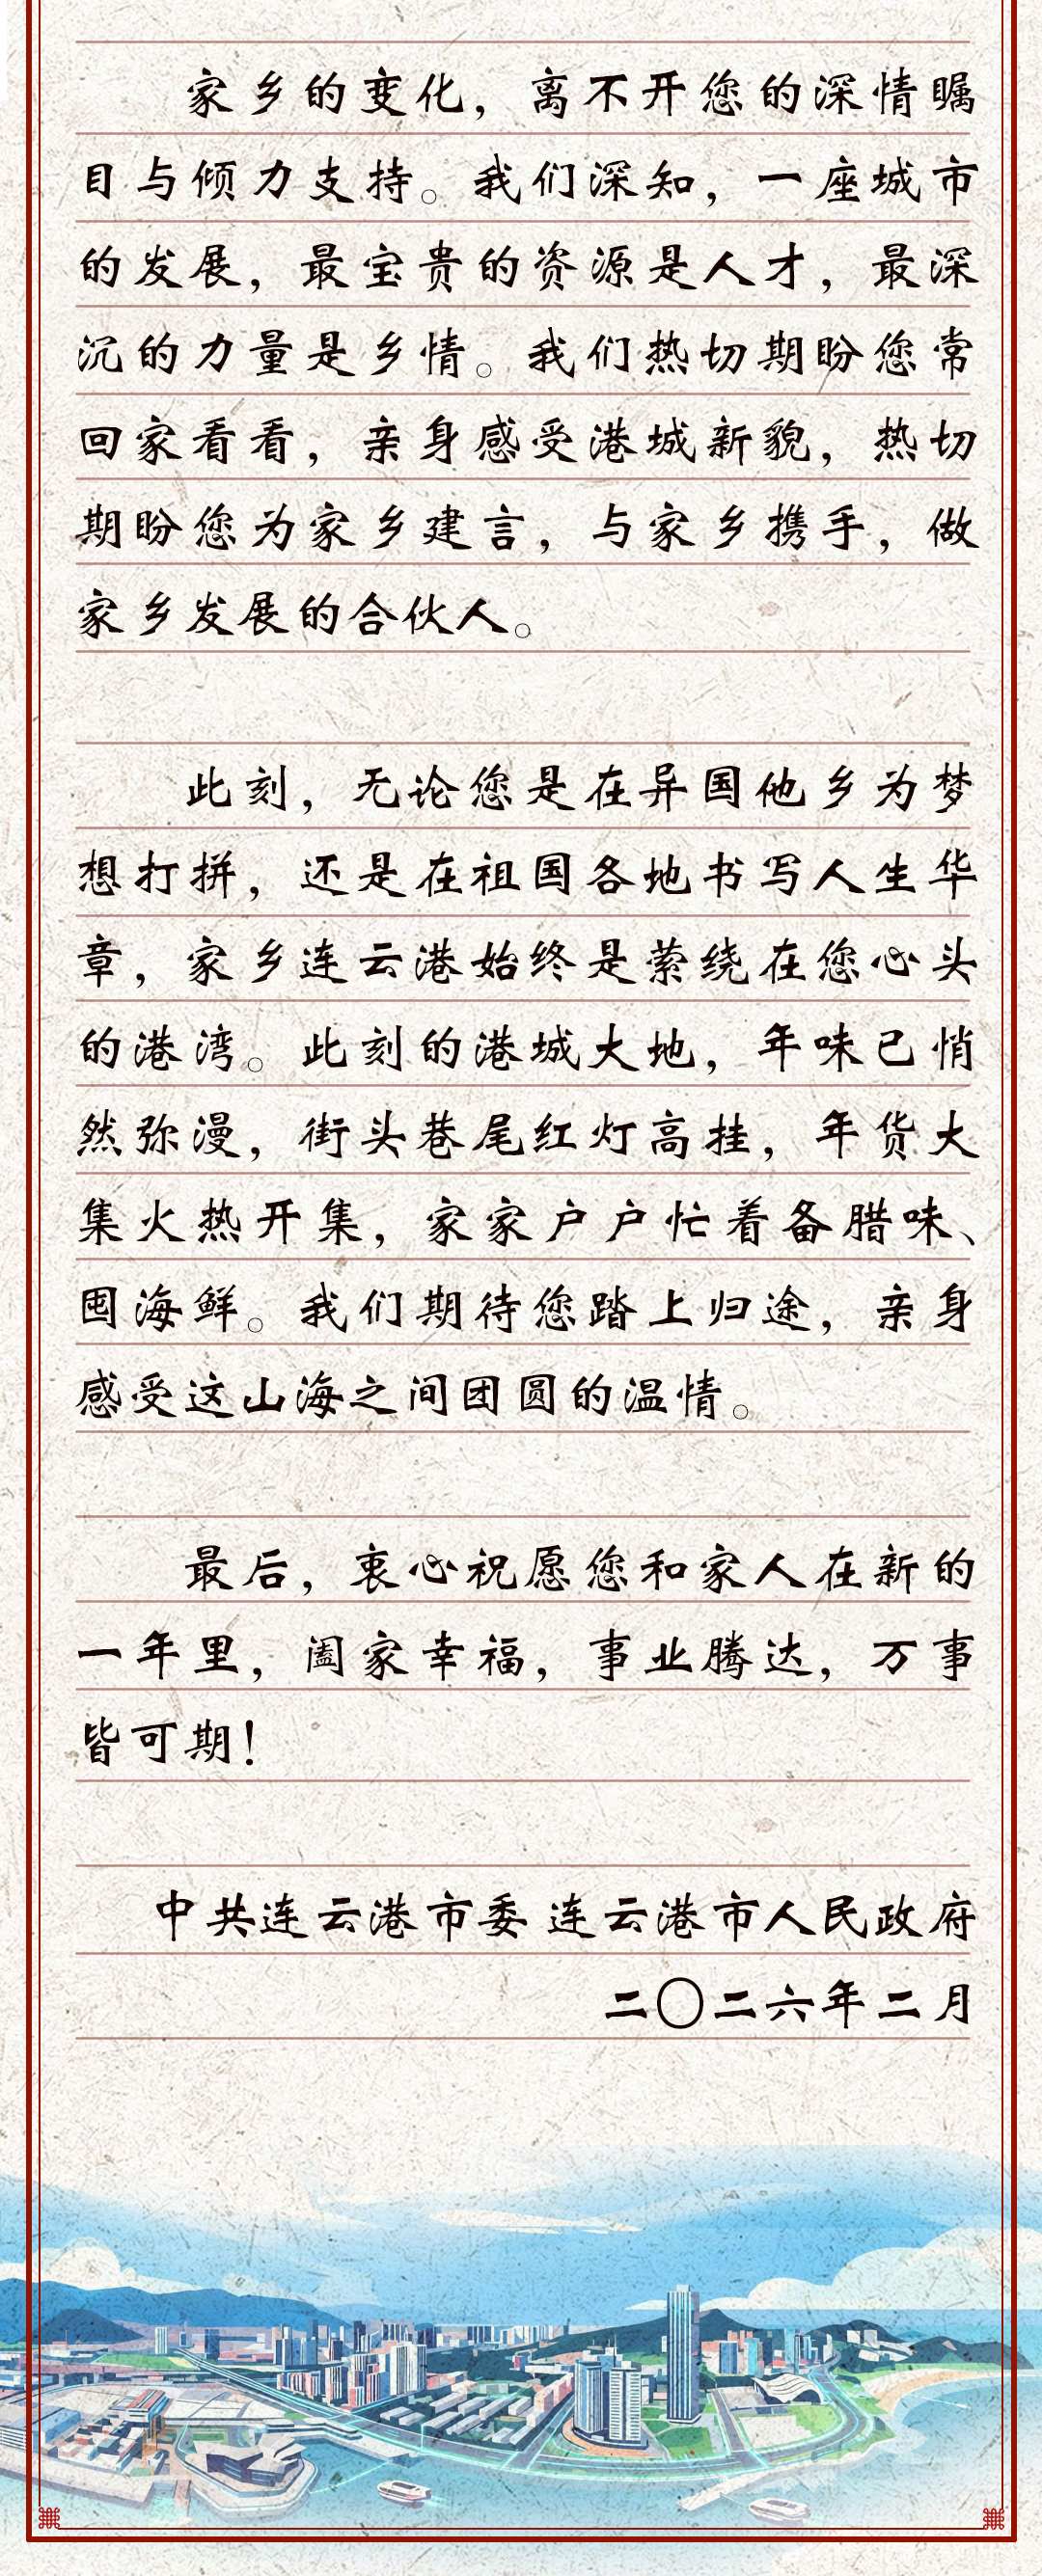 家乡的变化，离不开您的深情瞩
目与倾力支持。我们深知，一座城市
的发展，最宝贵的资源是人才，最深
沉的力量是乡情。我们热切期盼您常
回家看看，亲身感受港城新貌，热切
期盼您为家乡建言，与家乡携手，做
家乡发展的合伙人。
此刻，无论您是在异国他乡为梦
想打拼，还是在祖国各地书写人生华
章，家乡连云港始终是萦绕在您心头
的港湾。此刻的港城大地，年味已悄
然弥漫，街头巷尾红灯高挂，年货大
集火热开集，家家户户忙着备腊味、
囤海鲜。我们期待您踏上归途，亲身
感受这山海之间团圆的温情。
最后，衷心祝愿您和家人在新的
一年里，阖家幸福，事业腾达，万事
皆可期！
中共连云港市委 连云港市人民政府
二〇二六年二月